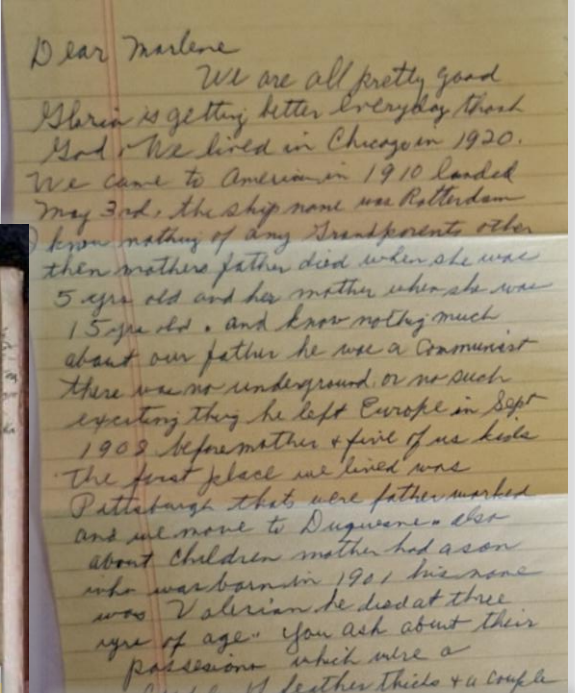 Dear Marlene
We are all pretty good
Gloria is getting better everyday thank
God. We lived in Chicago in 1920.
We came to America in 1910 landed
May 3rd, the ship name was Rotterdam
I know nothing of any Grandparents other
then mothers father died when she was
5 yrs old and her mother when she was
15 yrs old. and know nothig much
about our father he was a Communist
there was no underground or no such
exciting thing he left Europe in Sept
1908 before mother + five of us kids
the first place we lived was
Pittsburgh thats were father worked
and we move to Duquesne. also
about children mother had a son
who was born in 1901 his name
was Valerian he died at three
yrs of age. You ask about their
possesions which were a
of feather thicks + a couple